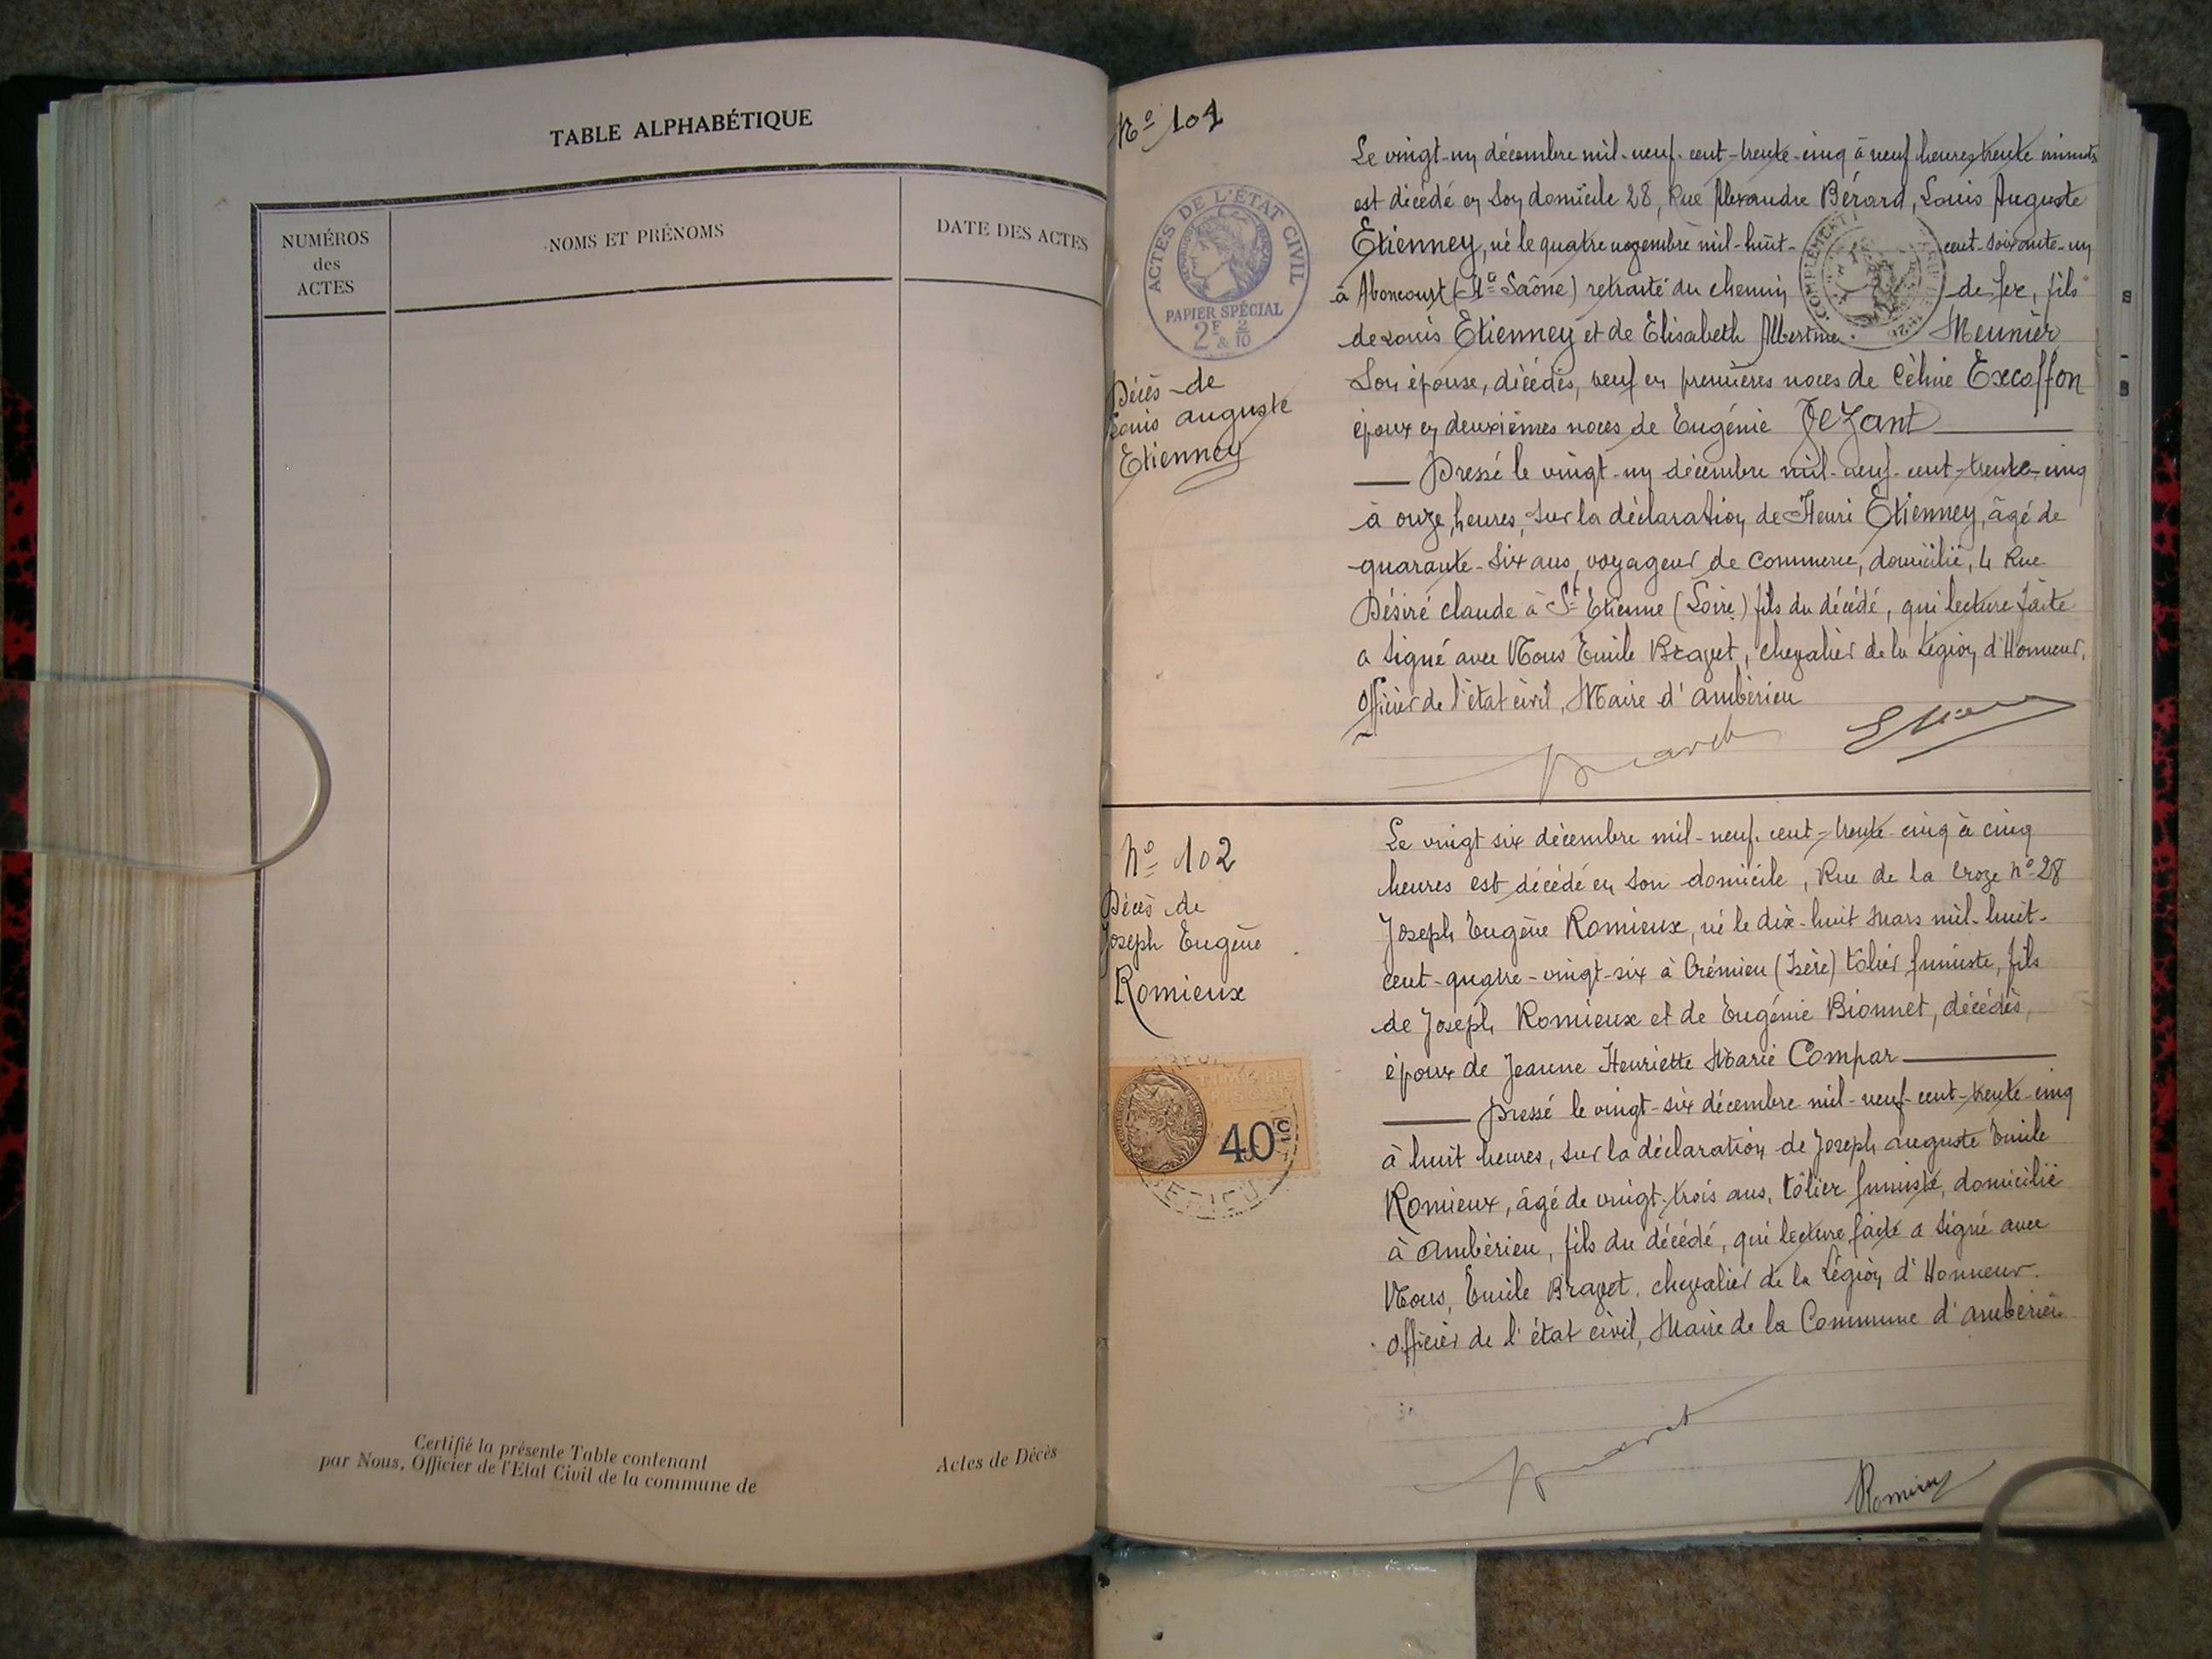 TABLE ALPHABÉTIQUE
NUMÉROS
des
ACTES
NOMS ET PRÉNOMS
DATE DES ACTES
Certifié la présente Table contenant
par Nous, Officier de l'Etat Civil de la commune de
Actes de Décès
No 101
ACTES DE L'ÉTAT CIVIL
PAPIER SPÉCIAL
2F & 2/10
Décès de
Louis Auguste
Etienney
Le vingt-un décembre mil-neuf-cent-trente-cinq à neuf heures trente minutes
est décédé en son domicile 28, Rue Alexandre Bérard, Louis Auguste
Etienney, né le quatre novembre mil-huit-cent-soixante-un
à Aboncourt (Hte Saône) retraité du chemin de fer, fils
de Louis Etienney et de Elisabeth Albertine Meunier
Son épouse, décédés, veuf en premières noces de Céline Excoffon
époux en deuxièmes noces de Eugénie
Dressé le vingt-un décembre mil-neuf-cent-trente-cinq
à onze heures, sur la déclaration de Henri Etienney, âgé de
quarante-six ans, voyageur de commerce, domicilié, 4 Rue
Désiré Claude à St Etienne (Loire) fils du décédé, qui lecture faite
a signé avec Nous Emile Bravet, chevalier de la Légion d'Honneur,
Officier de l'état civil, Maire d'Ambérieu
Bravet
No 102
Décès de
Joseph Eugène
Romieux
TIMBRE
FISCAL
40c
Le vingt six décembre mil-neuf-cent-trente-cinq à cinq
heures est décédé en son domicile, Rue de la Croze no 28
Joseph Eugène Romieux, né le dix-huit Mars mil-huit-
cent-quatre-vingt-six à Crémieu (Isère) tôlier fumiste, fils
de Joseph Romieux et de Eugénie Bionnet, décédés,
époux de Jeanne Henriette Marie Compar
Dressé le vingt-six décembre mil-neuf-cent-trente-cinq
à huit heures, sur la déclaration de Joseph Auguste Emile
Romieux, âgé de vingt-trois ans, tôlier fumiste, domicilié
à Ambérieu, fils du décédé, qui lecture faite a signé avec
Nous, Emile Bravet, chevalier de la Légion d'Honneur.
Officier de l'état civil, Maire de la Commune d'Ambérieu
Bravet
Romieux